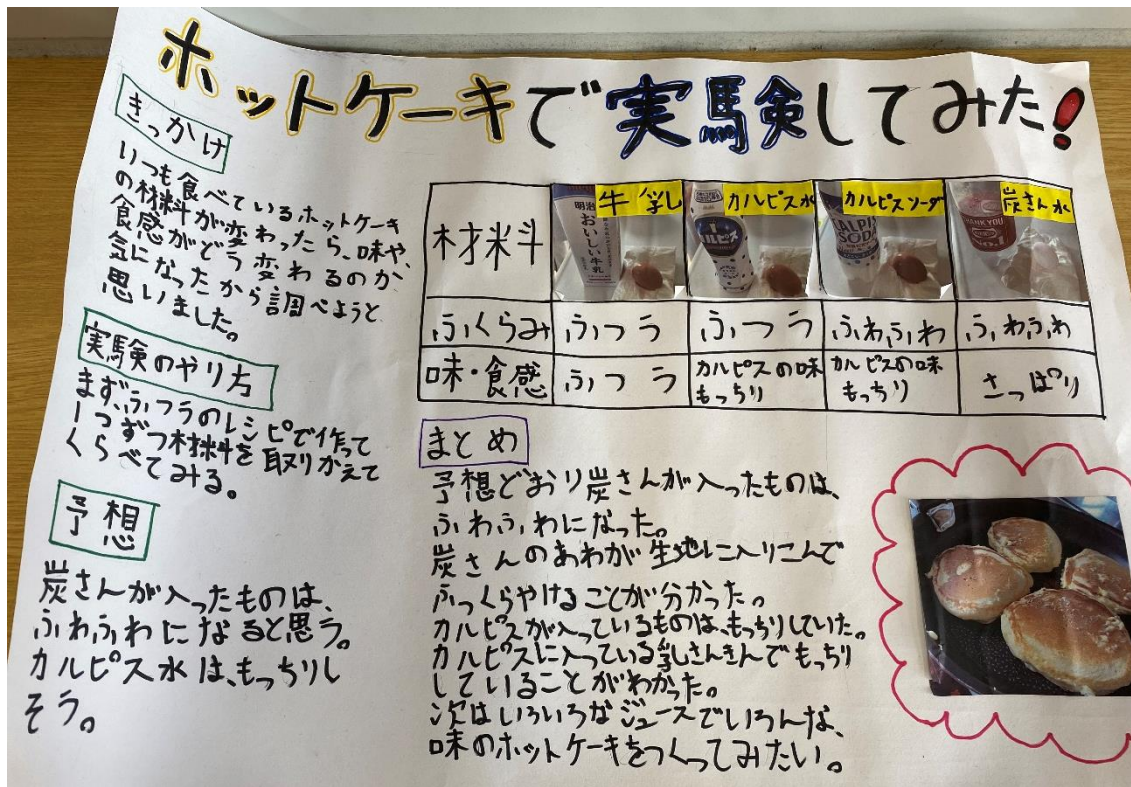 ホットケーキで実験してみた!
きっかけ
いつも食べているホットケーキ
の材料が変わったら、味や、
食感がどう変わるのか
気になったから調べようと
思いました。
実験のやり方
まず、ふつうのレシピで作って
一つずつ材料を取りかえて
くらべてみる。
予想
炭さんが入ったものは、
ふわふわになると思う。
カルピス水は、もっちりし
そう。
材料
牛乳
明治
おいしい牛乳
カルピス水
カルピス
カルピスソーダ
CALPIS
SODA
炭さん水
THANK YOU
NO.1
ふくらみ ふつう ふつう ふわふわ ふわふわ
味・食感 ふつう カルピスの味 もっちり カルピスの味 もっちり さっぱり
まとめ
予想どおり炭さんが入ったものは、
ふわふわになった。
炭さんのあわが生地に入りこんで
ふっくらやけることが分かった。
カルピスが入っているものは、もっちりしていた。
カルピスに入っている乳さんきんでもっちり
していることがわかった。
次はいろいろなジュースでいろんな、
味のホットケーキをつくってみたい。